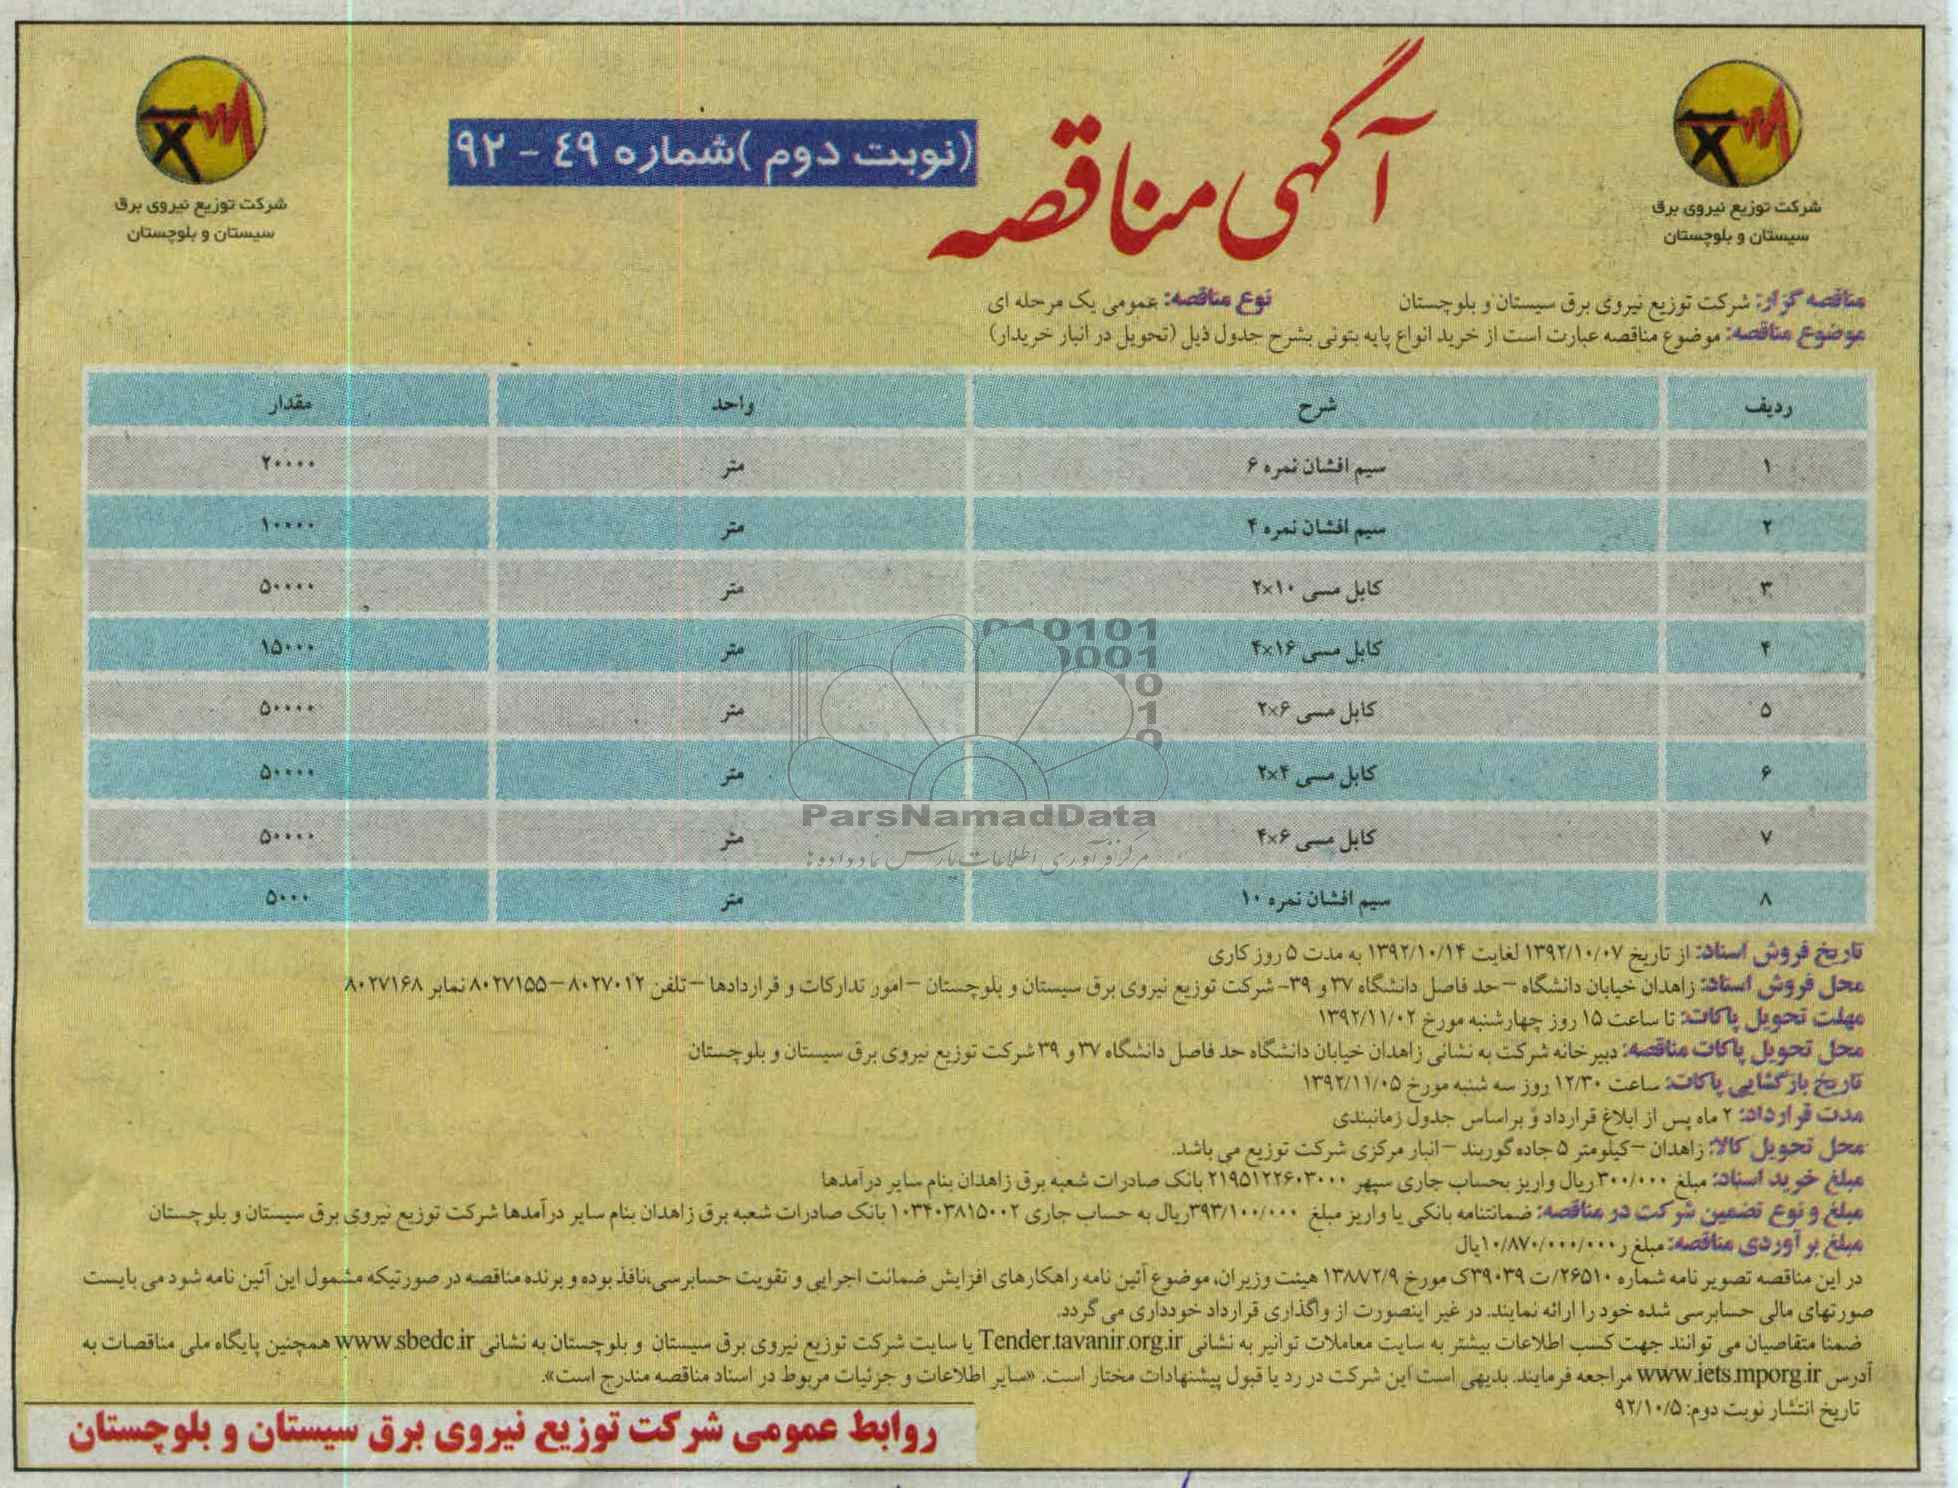 آگهی مناقصه
(نوبت دوم )شماره ٤٩ - ٩٢
شرکت توزیع نیروی برق
سیستان و بلوچستان
شرکت توزیع نیروی برق
سیستان و بلوچستان
مناقصه گزار: شرکت توزیع نیروی برق سیستان و بلوچستان نوع مناقصه: عمومی یک مرحله ای
موضوع مناقصه: موضوع مناقصه عبارت است از خرید انواع پایه بتونی بشرح جدول ذیل (تحویل در انبار خریدار)
ردیف شرح واحد مقدار
۱ سیم افشان نمره ۶ متر ۲۰۰۰۰
۲ سیم افشان نمره ۴ متر ۱۰۰۰۰
۳ کابل مسی ۱۰×۲ متر ۵۰۰۰۰
۴ کابل مسی ۱۶×۴ متر ۱۵۰۰۰
۵ کابل مسی ۶×۲ متر ۵۰۰۰۰
۶ کابل مسی ۴×۲ متر ۵۰۰۰۰
۷ کابل مسی ۶×۴ متر ۵۰۰۰۰
۸ سیم افشان نمره ۱۰ متر ۵۰۰۰
ParsNamadData
مرکز فرآوری اطلاعات پارس نماد داده ها
تاریخ فروش اسناد: از تاریخ ۱۳۹۲/۱۰/۰۷ لغایت ۱۳۹۲/۱۰/۱۴ به مدت ۵ روز کاری
محل فروش اسناد: زاهدان خیابان دانشگاه – حد فاصل دانشگاه ۳۷ و ۳۹- شرکت توزیع نیروی برق سیستان و بلوچستان – امور تدارکات و قراردادها – تلفن ۸۰۲۷۰۱۲ – ۸۰۲۷۱۵۵ نمابر ۸۰۲۷۱۶۸
مهلت تحویل پاکات: تا ساعت ۱۵ روز چهارشنبه مورخ ۱۳۹۲/۱۱/۰۲
محل تحویل پاکات مناقصه: دبیرخانه شرکت به نشانی زاهدان خیابان دانشگاه حد فاصل دانشگاه ۳۷ و ۳۹ شرکت توزیع نیروی برق سیستان و بلوچستان
تاریخ بازگشایی پاکات: ساعت ۱۲/۳۰ روز سه شنبه مورخ ۱۳۹۲/۱۱/۰۵
مدت قرارداد: ۲ ماه پس از ابلاغ قرارداد و براساس جدول زمانبندی
محل تحویل کالا: زاهدان – کیلومتر ۵ جاده گوربند – انبار مرکزی شرکت توزیع می باشد.
مبلغ خرید اسناد: مبلغ ۳۰۰/۰۰۰ ریال واریز بحساب جاری سپهر ۲۱۹۵۱۲۲۶۰۳۰۰۰ بانک صادرات شعبه برق زاهدان بنام سایر درآمدها
مبلغ و نوع تضمین شرکت در مناقصه: ضمانتنامه بانکی یا واریز مبلغ ۳۹۳/۱۰۰/۰۰۰ریال به حساب جاری ۱۰۳۴۰۳۸۱۵۰۰۲ بانک صادرات شعبه برق زاهدان بنام سایر درآمدها شرکت توزیع نیروی برق سیستان و بلوچستان
مبلغ برآوردی مناقصه: مبلغ ر۱۰/۸۷۰/۰۰۰/۰۰۰یال
در این مناقصه تصویر نامه شماره ۲۶۵۱۰/ت ۳۹۰۳۹ک مورخ ۱۳۸۸/۲/۹ هیئت وزیران، موضوع آئین نامه راهکارهای افزایش ضمانت اجرایی و تقویت حسابرسی،نافذ بوده و برنده مناقصه در صورتیکه مشمول این آئین نامه شود می بایست
صورتهای مالی حسابرسی شده خود را ارائه نمایند. در غیر اینصورت از واگذاری قرارداد خودداری می گردد.
ضمنا متقاصیان می توانند جهت کسب اطلاعات بیشتر به سایت معاملات توانیر به نشانی Tender.tavanir.org.ir یا سایت شرکت توزیع نیروی برق سیستان و بلوچستان به نشانی www.sbedc.ir همچنین پایگاه ملی مناقصات به
آدرس www.iets.mporg.ir مراجعه فرمایند. بدیهی است این شرکت در رد یا قبول پیشنهادات مختار است. «سایر اطلاعات و جزئیات مربوط در اسناد مناقصه مندرج است».
تاریخ انتشار نوبت دوم: ۹۲/۱۰/۵
روابط عمومی شرکت توزیع نیروی برق سیستان و بلوچستان